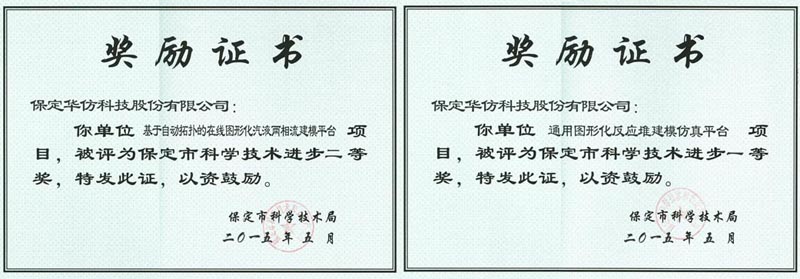 奖励证书
保定华仿科技股份有限公司：
你单位 基于自动拓扑的在线图形化汽液两相流建模平台 项
目，被评为保定市科学技术进步二等
奖，特发此证，以资鼓励。
保定市科学技术局
二〇一五年五月
奖励证书
保定华仿科技股份有限公司：
你单位 通用图形化反应堆建模仿真平台 项
目，被评为保定市科学技术进步一等
奖，特发此证，以资鼓励。
保定市科学技术局
二〇一五年五月